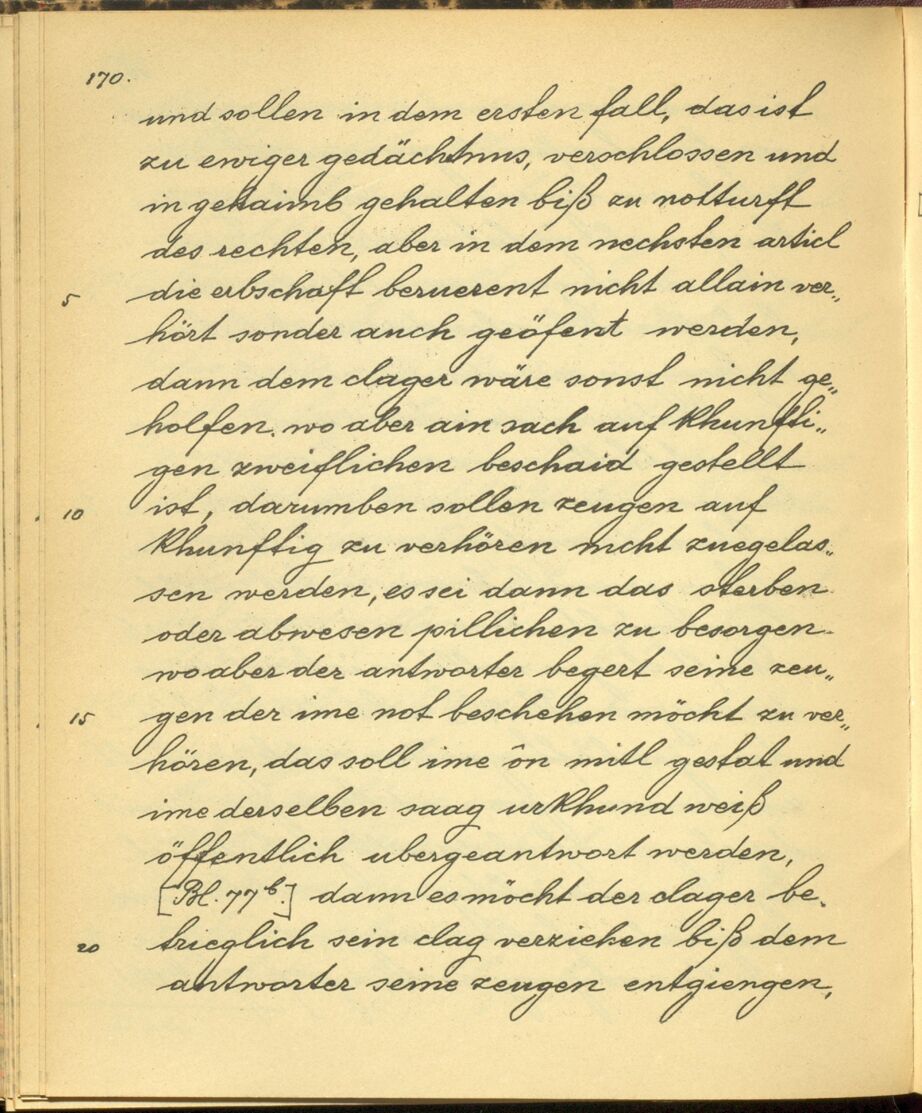 170.
und sollen in dem ersten fall, das ist
zu ewiger gedächtnus, verschlossen und
in gehaimb gehalten biß zu notturft
des rechten, aber in dem nechsten articl
5 die erbschaft beruerent nicht allain ver„
hört sonder auch geöfent werden,
dann dem clager wäre sonst nicht ge„
holfen. wo aber ain sach auf khunfti„
gen zweiflichen beschaid gestellt
10 ist, darumben sollen zeugen auf
khunftig zu verhören nicht zuegelas„
sen werden, es sei dann das sterben
oder abwesen pillichen zu besorgen.
wo aber der antworter begert seine zeu„
15 gen der ime not beschehen möcht zu ver„
hören, das soll ime ôn mitl gestat und
ime derselben saag urkhund weiß
öffentlich ubergeantwort werden,
[Bl. 77b.] dann es möcht der clager be„
20 trieglich sein clag verziehen biß dem
antworter seine zeugen entgiengen,